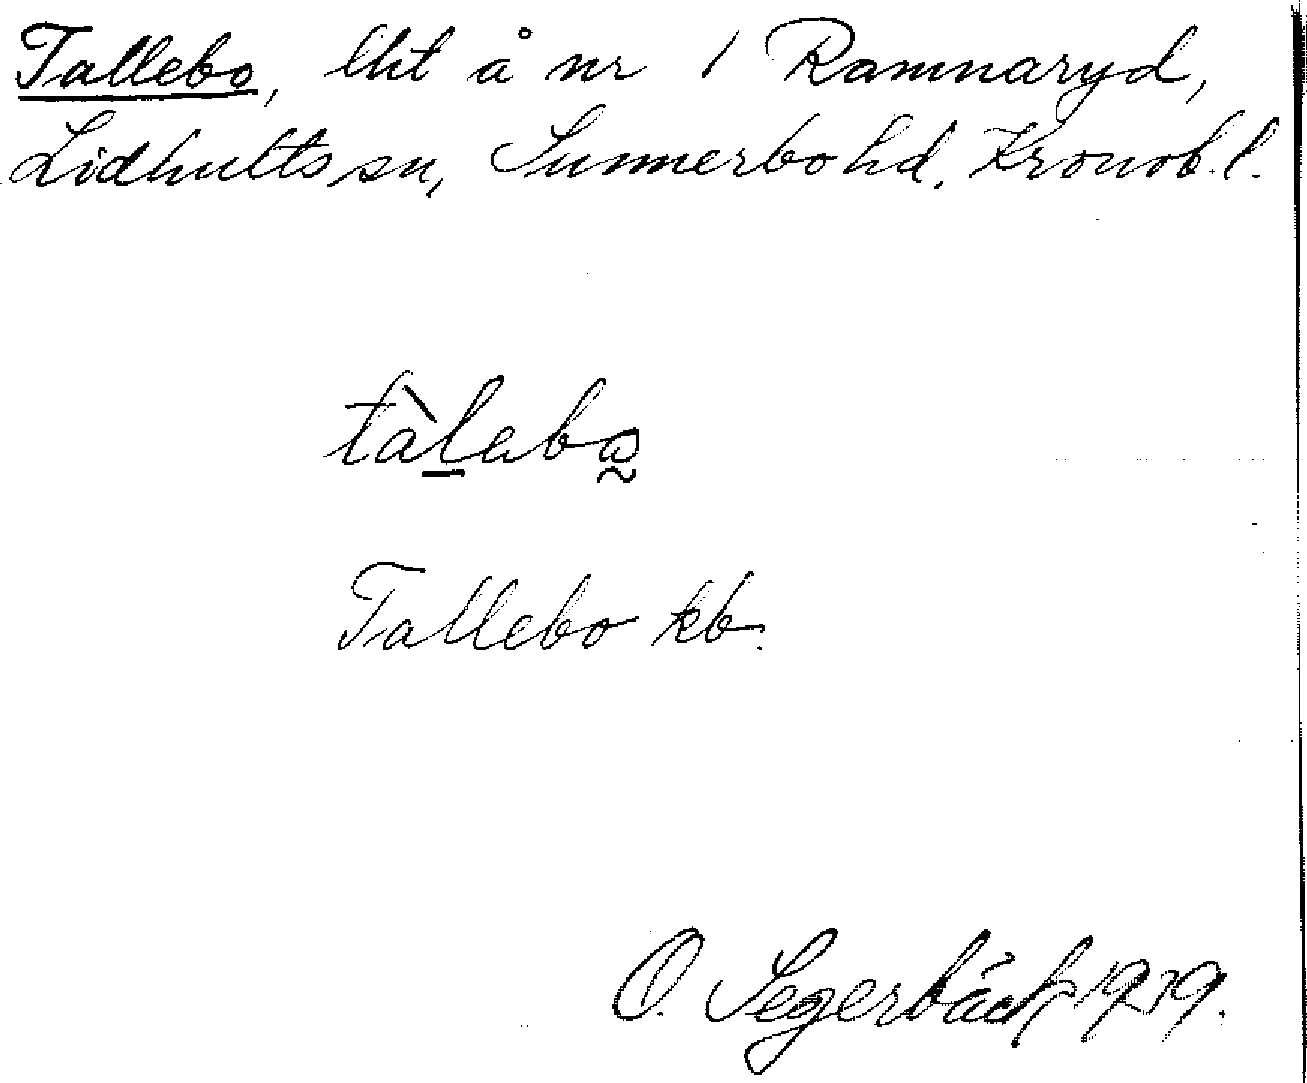 Tallebo, lht å nr 1 Ramnaryd,
Lidhults sn, Sunnerbo hd, Kronob. l.
tàlabo
Tallebo kb.
O. Segerbäck 1939.